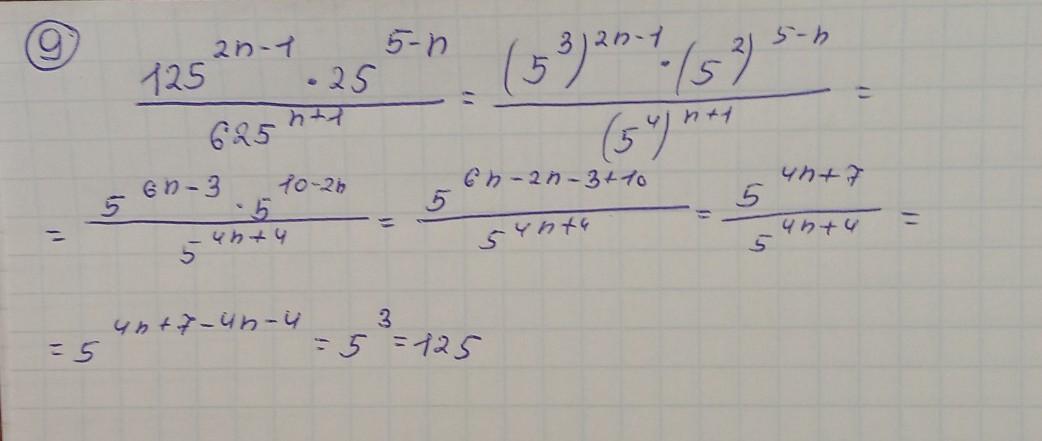 9
125^{2n-1} · 25^{5-n} / 625^{n+1} = (5^3)^{2n-1} · (5^2)^{5-n} / (5^4)^{n+1} =
= 5^{6n-3} · 5^{10-2n} / 5^{4n+4} = 5^{6n-2n-3+10} / 5^{4n+4} = 5^{4n+7} / 5^{4n+4} =
= 5^{4n+7-4n-4} = 5^3 = 125